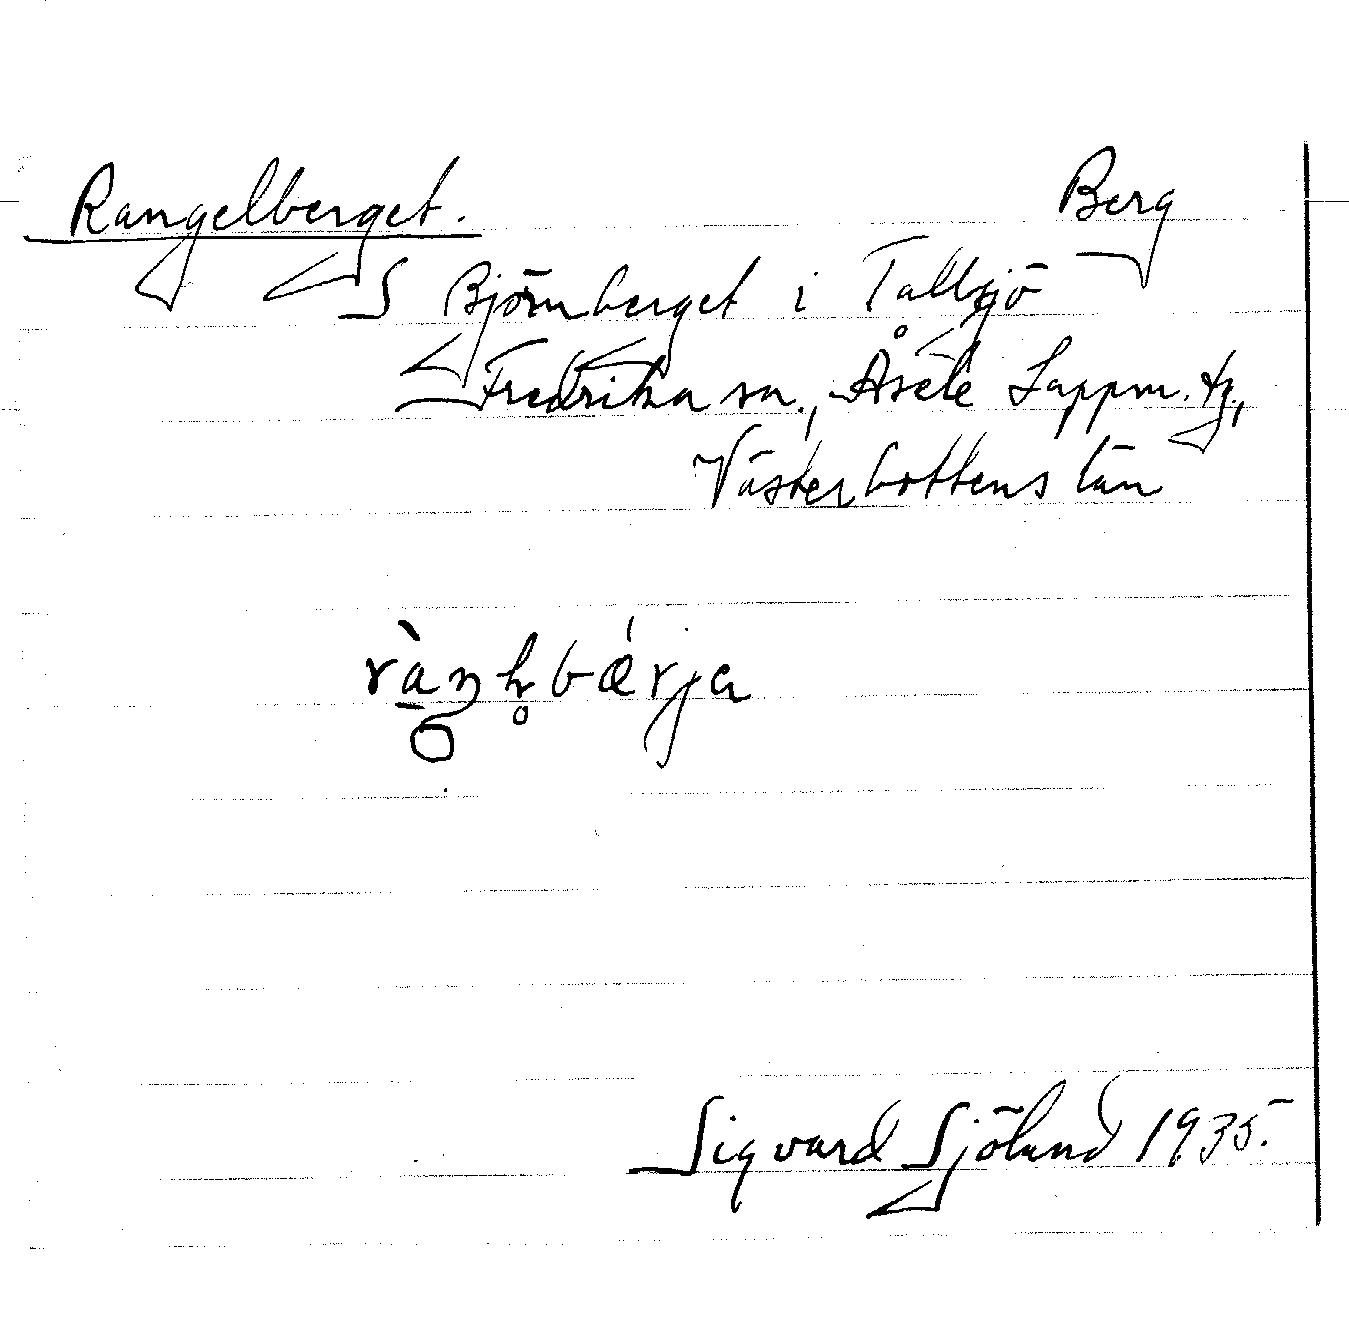 Rangelberget. Berg
S Björnberget i Tallsjö
Fredrika sn., Åsele Lappm. tg.,
Västerbottens län
Sigvard Sjölund 1935.